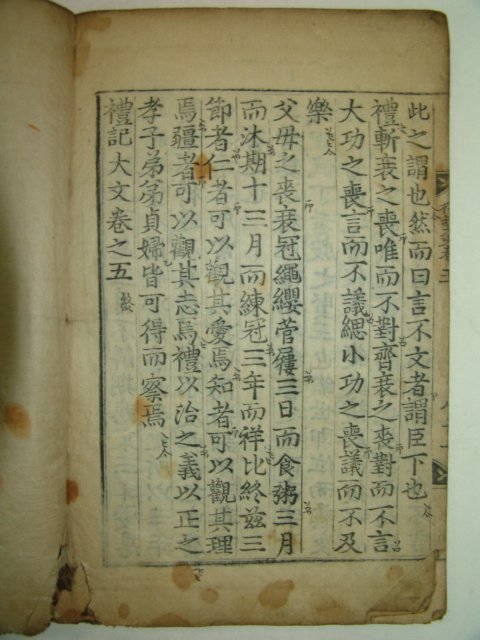 此之謂也然而曰言不文者謂臣下也
禮斬衰之喪唯而不對齊衰之喪對而不言
大功之喪言而不議緦小功之喪議而不及
樂
父母之喪衰冠繩纓菅屨三日而食粥三月
而沐期十三月而練冠三年而祥比終茲三
節者仁者可以觀其愛焉知者可以觀其理
焉彊者可以觀其志焉禮以治之義以正之
孝子弟弟貞婦皆可得而察焉
禮記大文卷之五 終